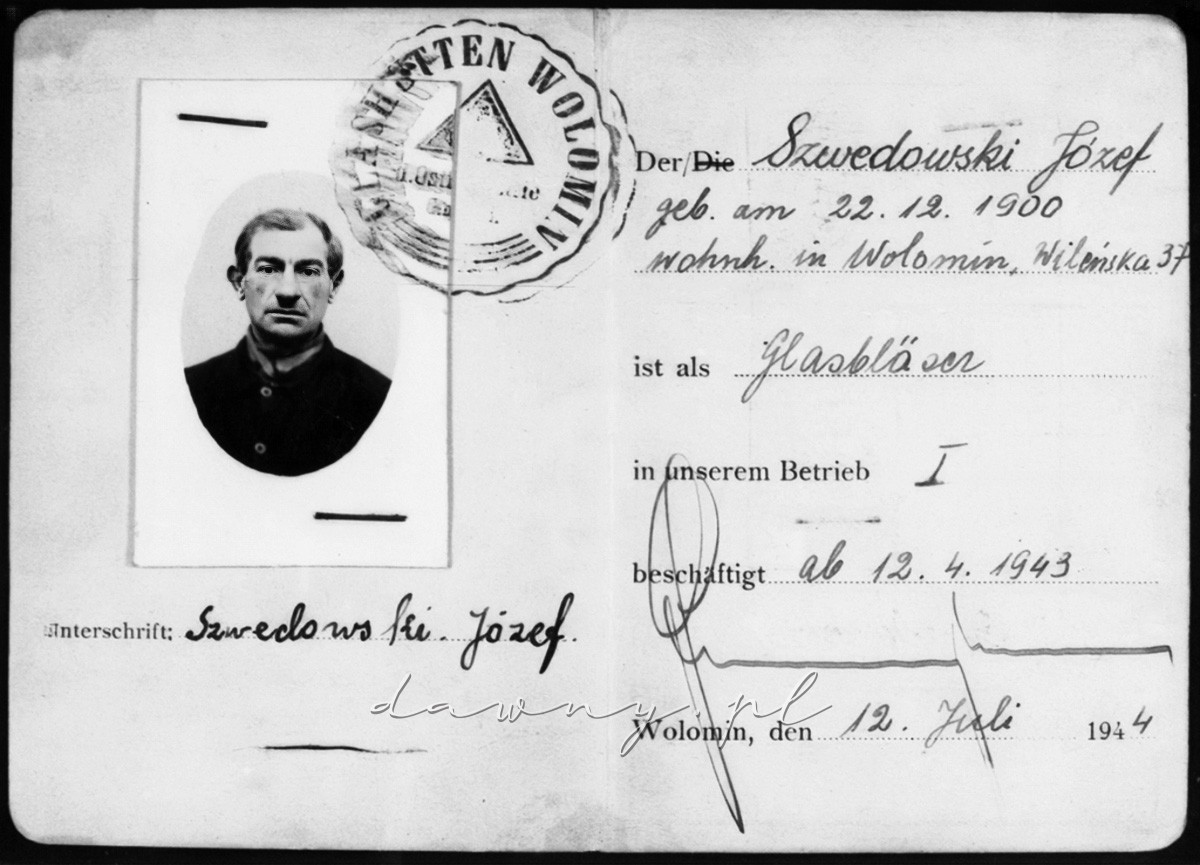 GLASHÜTTEN WOLOMIN
Unterschrift: Szwedowski Józef.
Der/Die Szwedowski Józef
geb. am 22.12.1900
wohnh. in Wolomin, Wileńska 37
ist als Glasbläser
in unserem Betrieb I
beschäftigt ab 12.4.1943
Wolomin, den 12. Juli 1944
dawny.pl